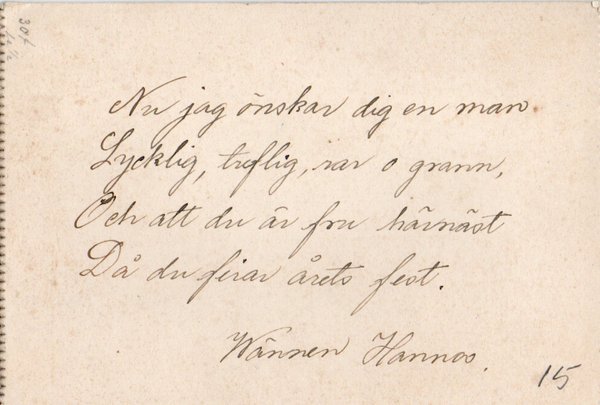 Nu jag önskar dig en man
Lycklig, treflig, rar o grann,
Och att du är fru härnäst
Då du firar årets fest.
Wännen Hannos.
15